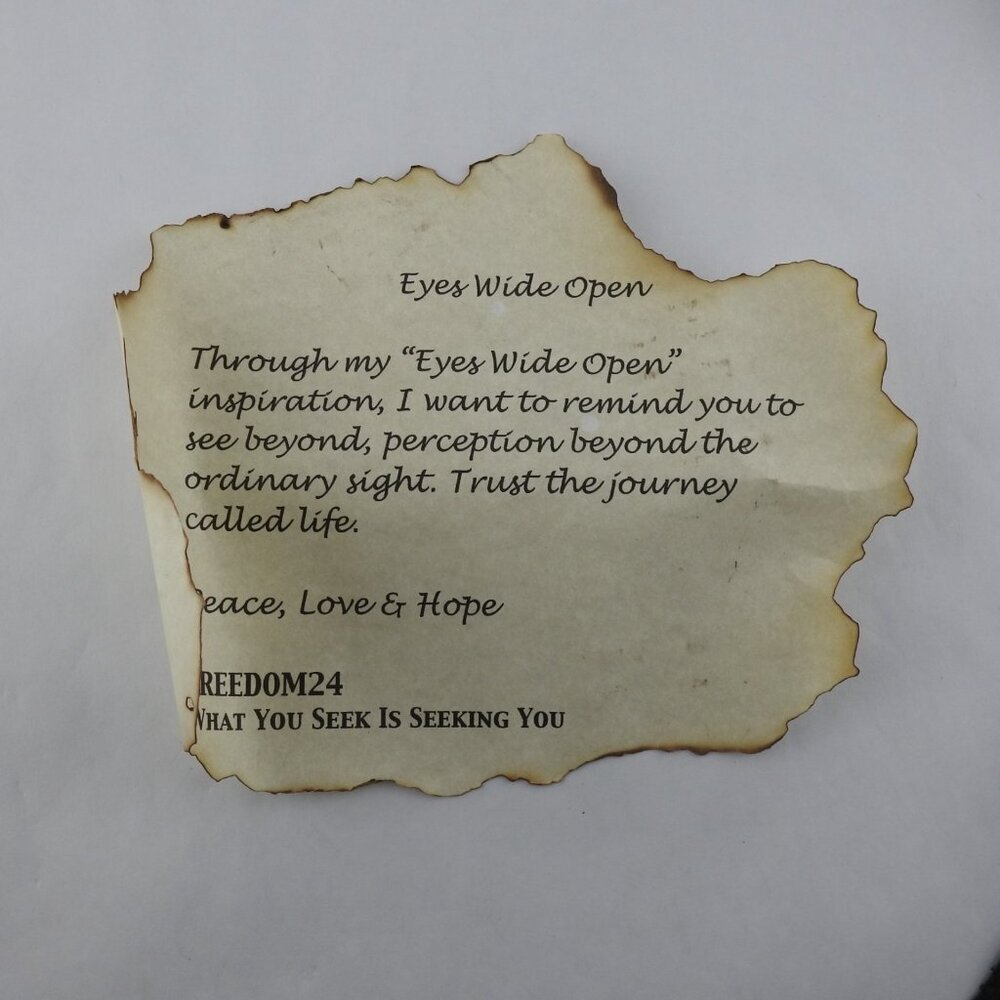 Eyes Wide Open
Through my “Eyes Wide Open”
inspiration, I want to remind you to
see beyond, perception beyond the
ordinary sight. Trust the journey
called life.
Peace, Love & Hope
FREEDOM24
WHAT YOU SEEK IS SEEKING YOU